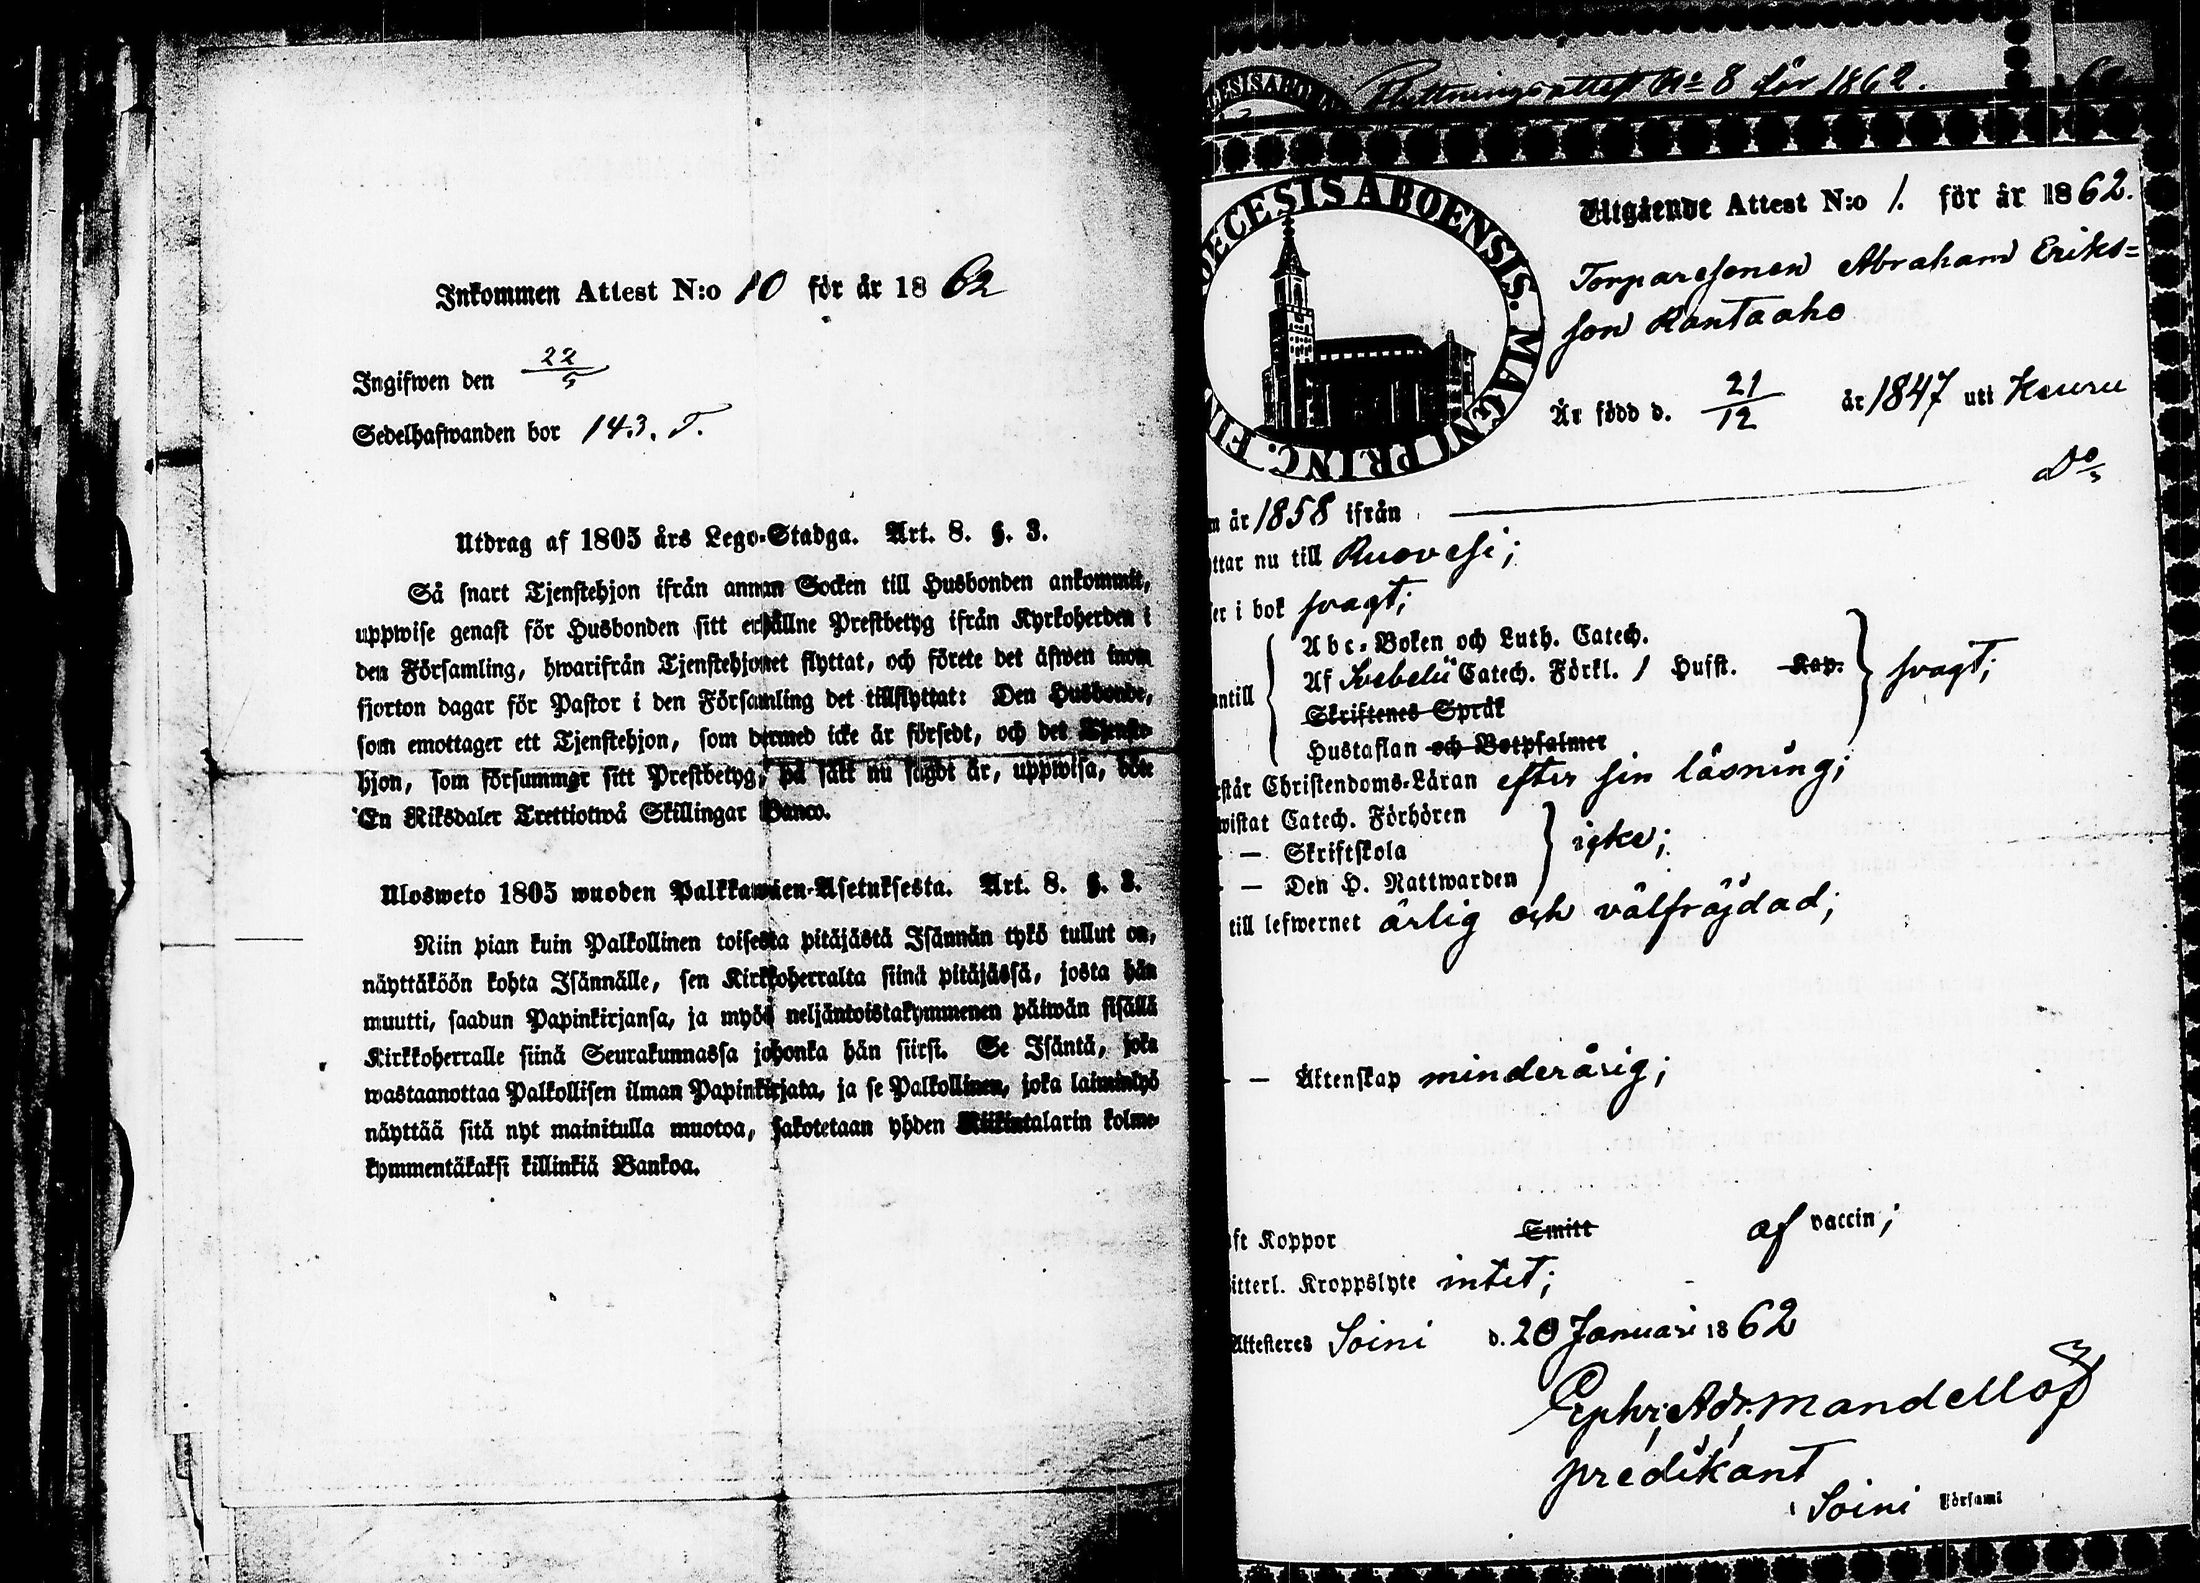 Inkommen Attest N:o 10 för år 1862
Ingifwen den 22/5
Sedelhafwanden bor 143. T.
Utdrag af 1805 års Lego-Stadga. Art. 8. §. 3.
Så snart Tjenstehjon ifrån annan Socken till Husbonden ankommit,
uppwise genast för Husbonden sitt erhållne Prestbetyg ifrån Kyrkoherden i
den Församling, hwarifrån Tjenstehjonet flyttat, och förete det äfwen inom
fjorton dagar för Pastor i den Församling det tillflyttat: Den Husbonde,
som emottager ett Tjenstehjon, som dermed icke är försedt, och det Tjenste-
hjon, som försummar sitt Prestbetyg, på sätt nu sagdt är, uppwisa, böte
En Riksdaler Trettiotwå Skillingar Banco.
Ulosweto 1805 wuoden Palkkawäen-Asetuksesta. Art. 8. §. 3.
Niin pian kuin Palkollinen toisesta pitäjästä Isännän tykö tullut on,
näyttäköön kohta Isännälle, sen Kirkkoherralta siinä pitäjässä, josta hän
muutti, saadun Papinkirjansa, ja myös neljäntoistakymmenen päiwän sisällä
Kirkkoherralle siinä Seurakunnassa johonka hän siirsi. Se Isäntä, joka
wastaanottaa Palkollisen ilman Papinkirjata, ja se Palkollinen, joka laiminlyö
näyttää sitä nyt mainitulla muotoa, sakotetaan yhden Riikintalarin kolme-
kymmentäkaksi killinkiä Bankoa.
Flyttningsattest No 8 för 1862.
DECESIS ABOENSIS. MAGNI PRINC. FIN
Utgående Attest N:o 1. för år 1862.
Torparesonen Abraham Eriks=
son Rantaaho
Är född d. 21/12 år 1847 uti Keuru
n år 1858 ifrån Do
ttar nu till Ruovesi;
er i bok svagt;
Abc-Boken och Luth. Catech.
antill Af Svebelii Catech. Förkl. 1 Hufst. Kap. svagt;
Skriftenes Språk
Hustaflan och Botpsalmer
rstår Christendoms-Läran efter sin läsning;
wistat Catech. Förhören
— Skriftskola icke;
— Den H. Nattwarden
till lefwernet ärlig och välfräjdad;
— — Äktenskap minderårig;
ft Koppor Smitt af vaccin;
itterl. Kroppslyte intet;
Attesteres Soini d. 20 Januari 1862
Ephr. Adr. Mandellöf
predikant
Soini Församl